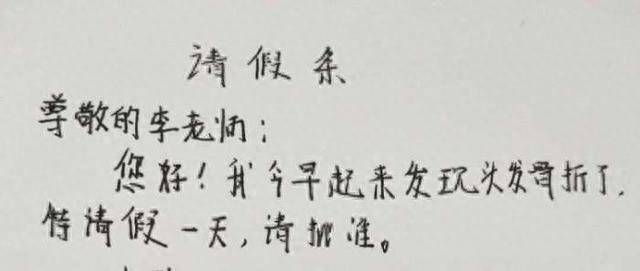 请假条
尊敬的李老师:
您好!我今早起来发现头发骨折了,
特请假一天,请批准。